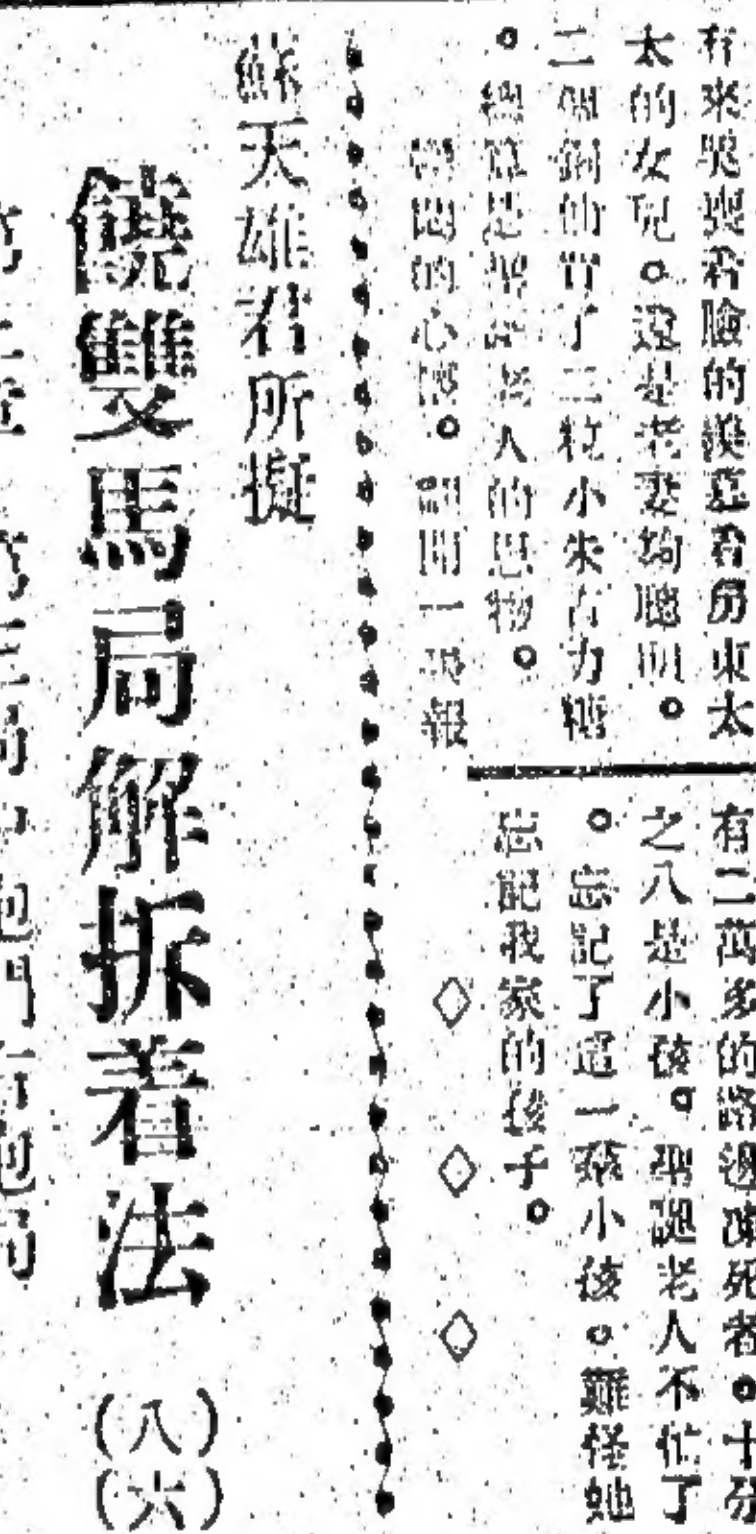 有來哭喪着臉的羨慕着房東太
太的女兒。還是老妻夠聰明。
二個銅仙買了二粒小朱古力糖
。總算是聖誕老人的恩物。
的心 。翻開一張報
有二萬多的路邊凍死者。十分
之八是小孩。聖誕老人不但了
。忘記了這一羣小孩。難怪她
忘記我家的孩子。
◇ ◇ ◇
蘇天雄君所擬
饒雙馬局解拆着法(八六)